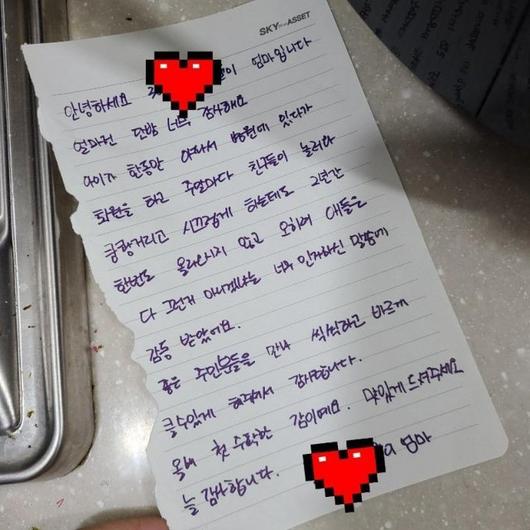 SKY ASSET
안녕하세요 이 엄마입니다
얼마전 단밤 너무 감사해요
아이가 한동안 아파서 병원에 있다가
퇴원을 하고 주말마다 친구들이 놀러와
쿵쾅거리고 시끄럽게 하는데도 2년간
한번도 올라오시지 않고 오히려 애들은
다 그런거 아니겠냐는 너무 인자하신 말씀에
감동 받았어요.
좋은 주민분들을 만나 씩씩하고 바르게
클수있게 해주셔서 감사합니다.
올해 첫 수확한 감이예요. 맛있게 드셔주세요
늘 감사합니다. 엄마